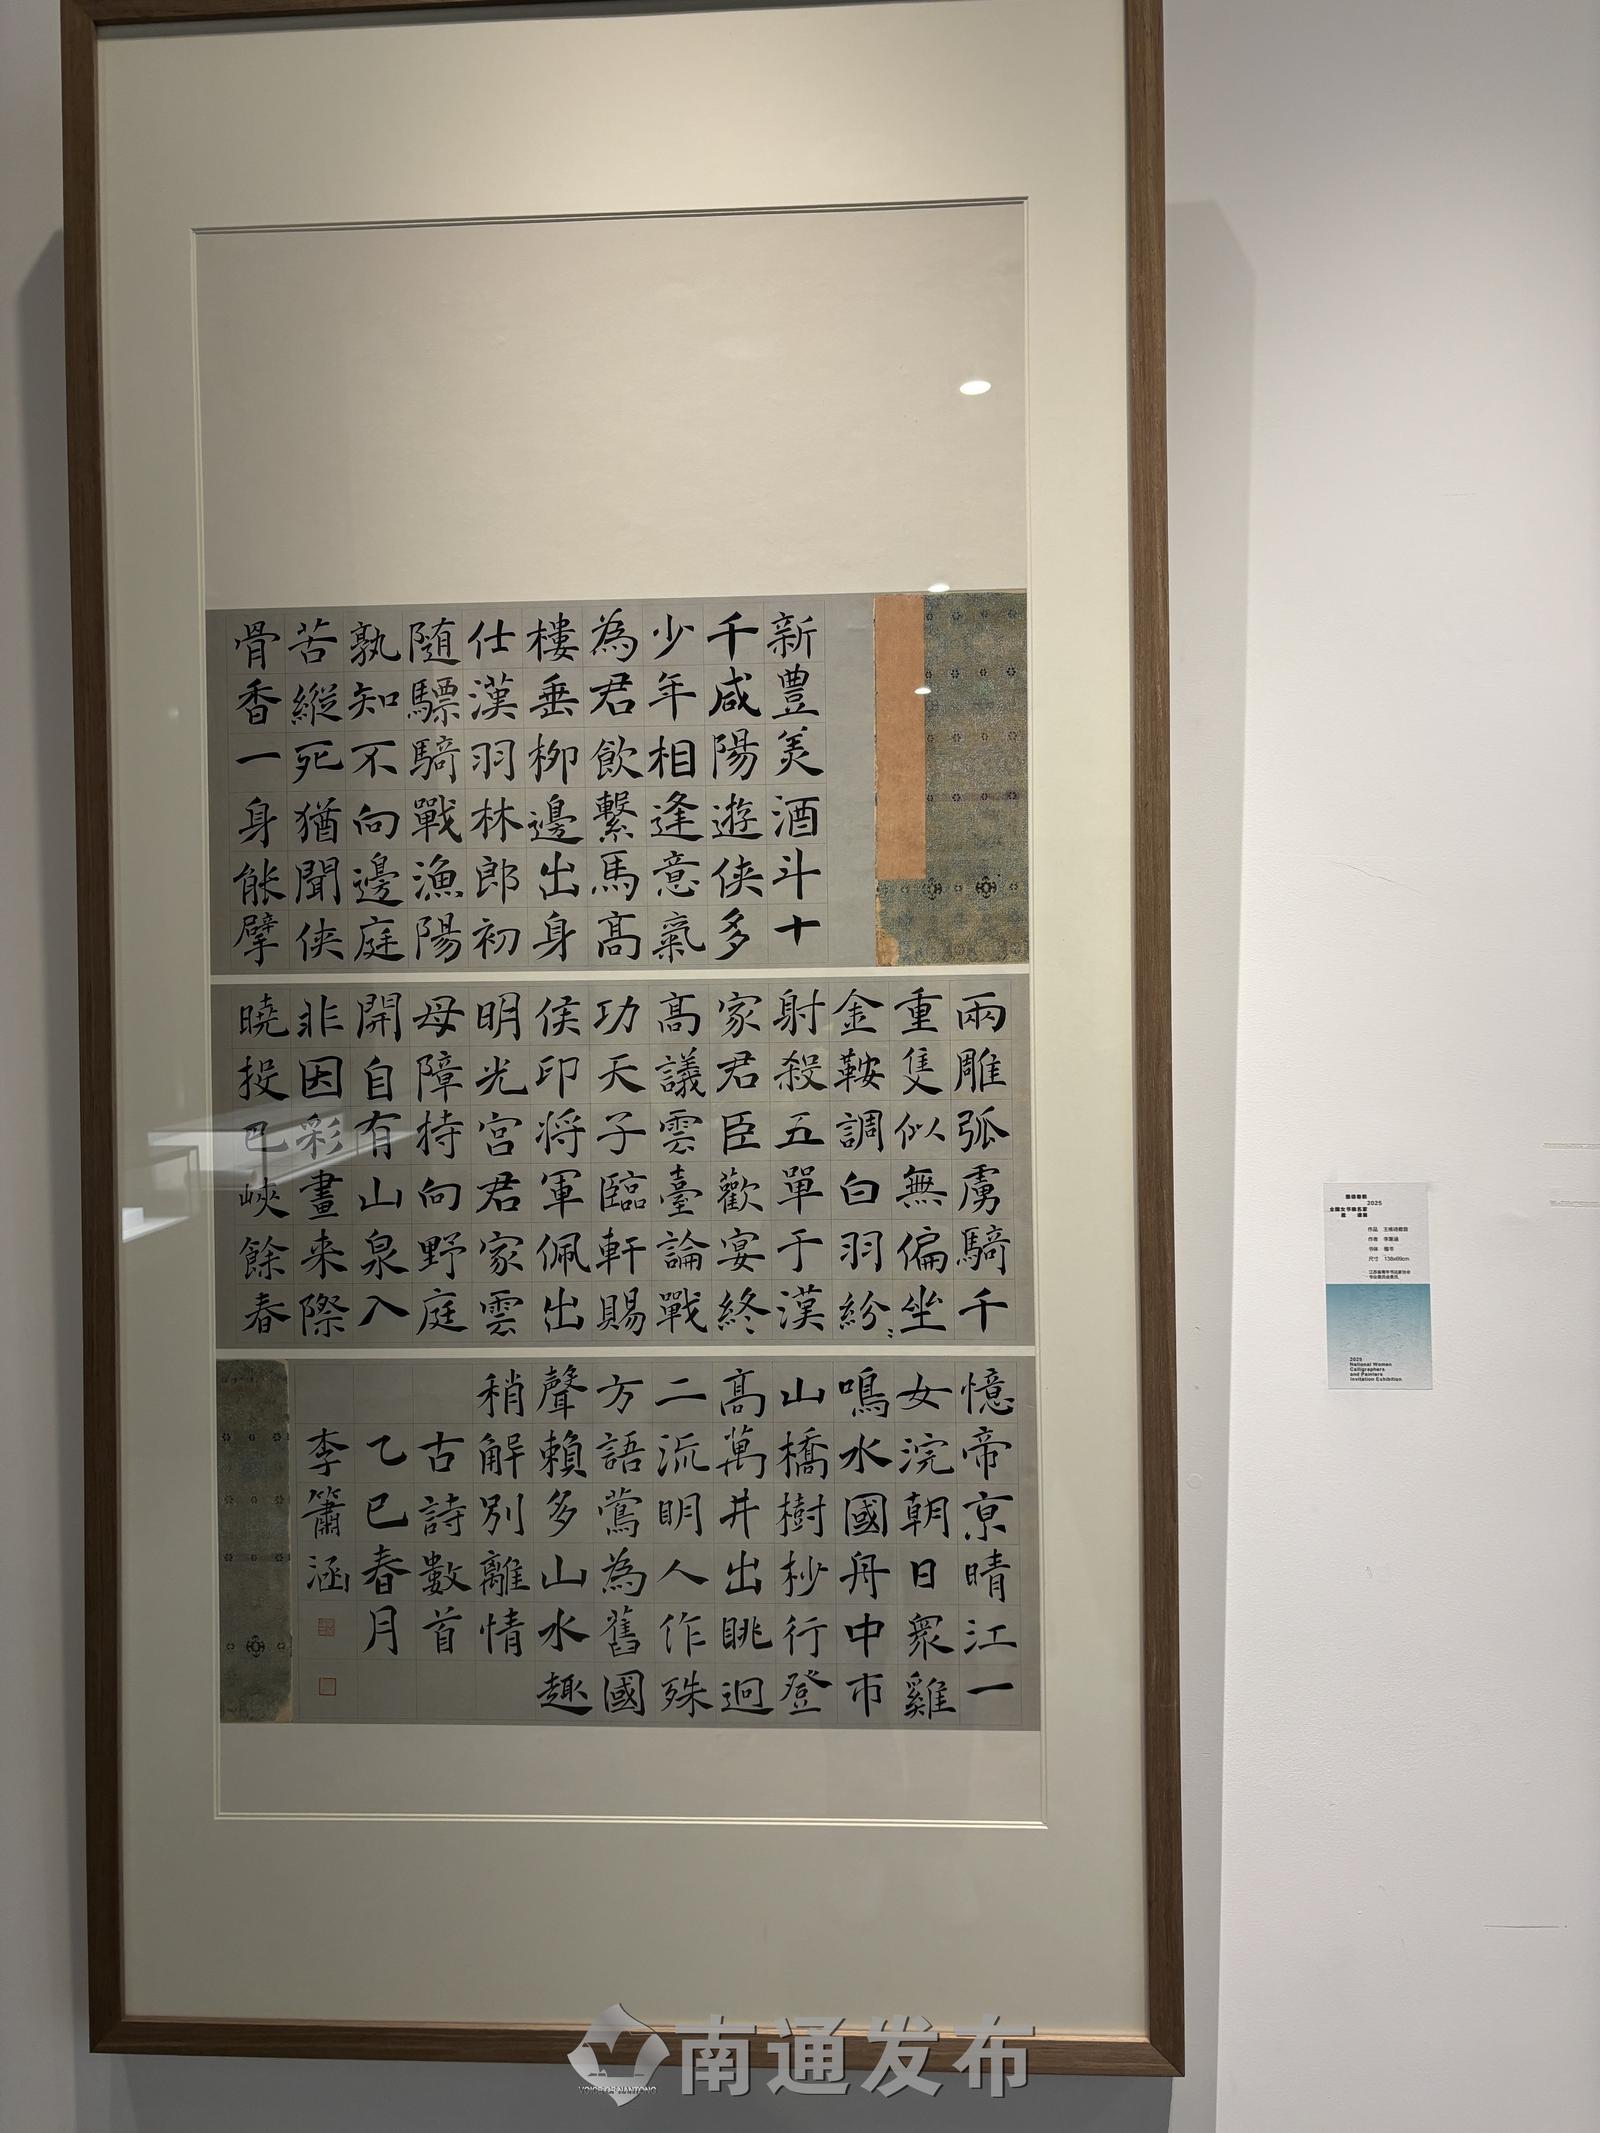 新豊羙酒斗十
千咸陽遊俠多
少年相逢意氣
為君飲繫馬髙
樓垂栁邊出身
仕漢羽林郎初
随驃騎戰漁陽
孰知不向邊庭
苦縱死猶聞俠
骨香一身能擘
兩雕弧虜騎千
重隻似無偏坐
金鞍調白羽紛〻
射殺五單于漢
家君臣歡宴終
髙議雲臺論戰
功天子臨軒賜
侯印将軍佩出
明光宮君家雲
母障持向野庭
開自有山泉入
非因彩畫来際
曉投巴峽餘春
憶帝亰晴江一
女浣朝日衆雞
鳴水國舟中市
山橋樹杪行登
髙萬井出眺迥
二流明人作殊
方語鶯為舊國
聲賴多山水趣
稍解別離情
古詩數首
乙巳春月
李簫涵
2025
全国女书画名家
邀 请展
作品 王维诗数首
作者 李箫涵
书体 楷书
尺寸 138x69cm
江苏省青年书法家协会
专业委员会委员
2025
National Women
Calligraphers
and Painters
Invitation Exhibition
南通发布
VOICE OF NANTONG